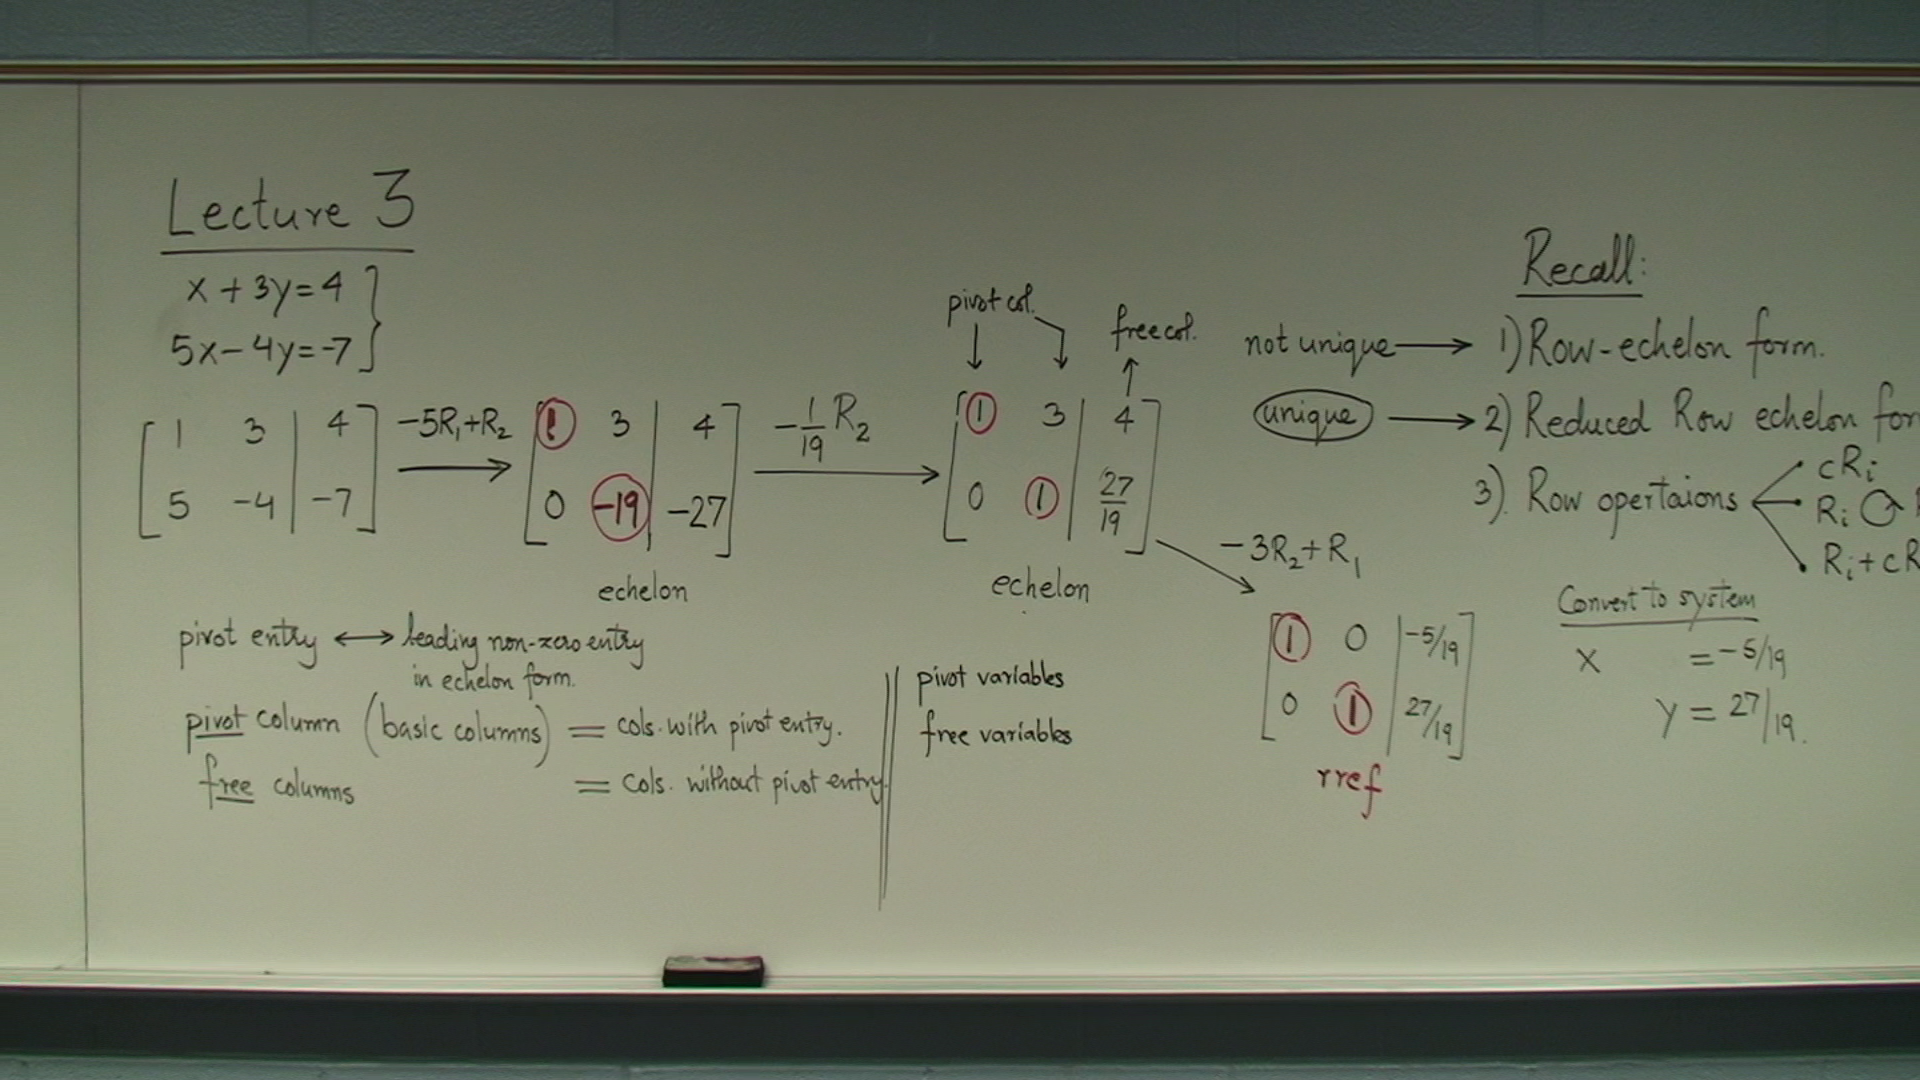 Lecture 3
x + 3y = 4
5x - 4y = -7
1 3 4
5 -4 -7
-5R₁+R₂
1 3 4
0 -19 -27
echelon
-1/19 R₂
pivot col.
free col.
1 3 4
0 1 27/19
echelon
-3R₂+R₁
1 0 -5/19
0 1 27/19
rref
pivot entry ↔ leading non-zero entry
in echelon form.
pivot column (basic columns) = cols. with pivot entry.
free columns = cols. without pivot entry.
pivot variables
free variables
Recall:
not unique → 1) Row-echelon form.
unique → 2) Reduced Row echelon for
3). Row opertaions
cRᵢ
Rᵢ
Rᵢ + cR
Convert to system
x = -5/19
y = 27/19.